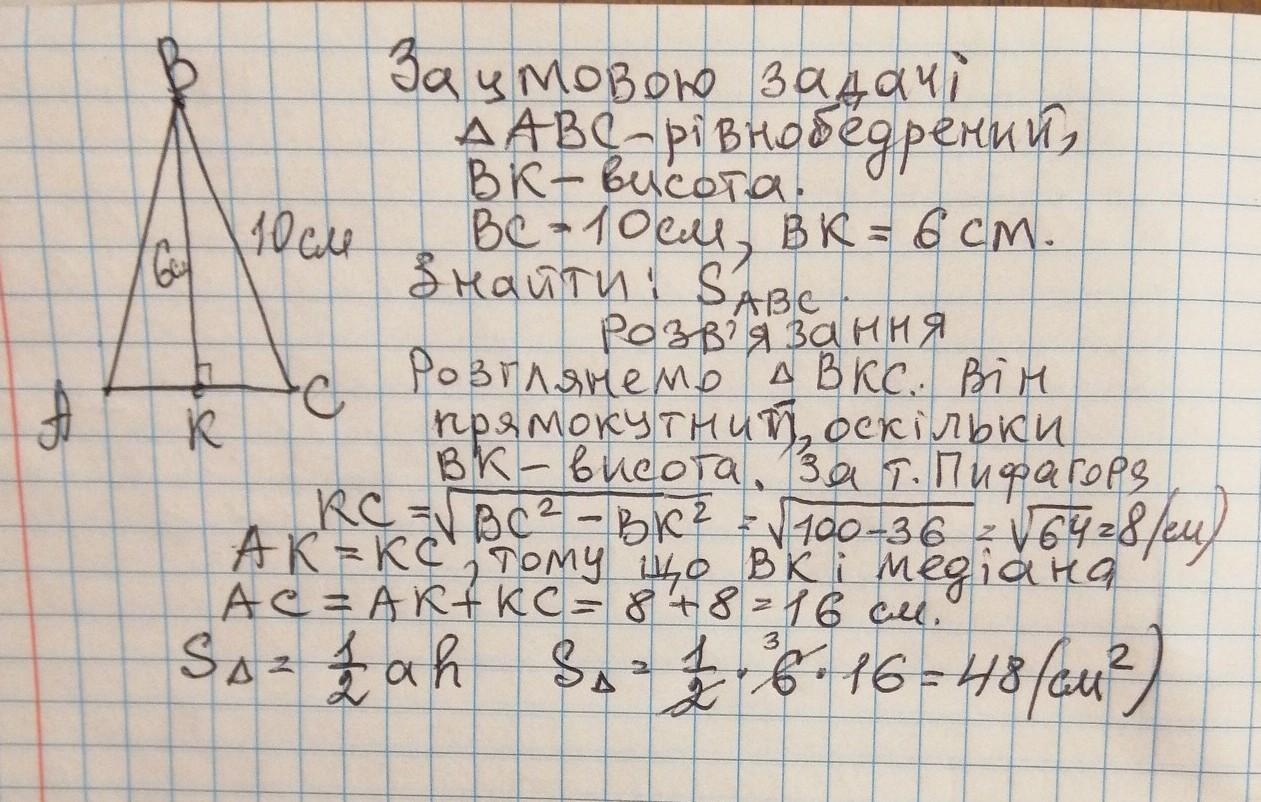 B
За умовою задачі
△ ABC – рівнобедрений,
BK – висота.
10см
BC = 10см, BK = 6 см.
6см
Знайти: S_ABC.
Розв'язання
Розглянемо △ BKC. Він
A K C
прямокутний, оскільки
BK – висота. За т. Пифагора
KC = √(BC² – BK²) = √(100–36) = √64 = 8 (см)
AK = KC, тому що BK і медіана
AC = AK + KC = 8 + 8 = 16 см.
S△ = 1/2 ah S△ = 1/2 · 6 3 · 16 = 48 (см²)